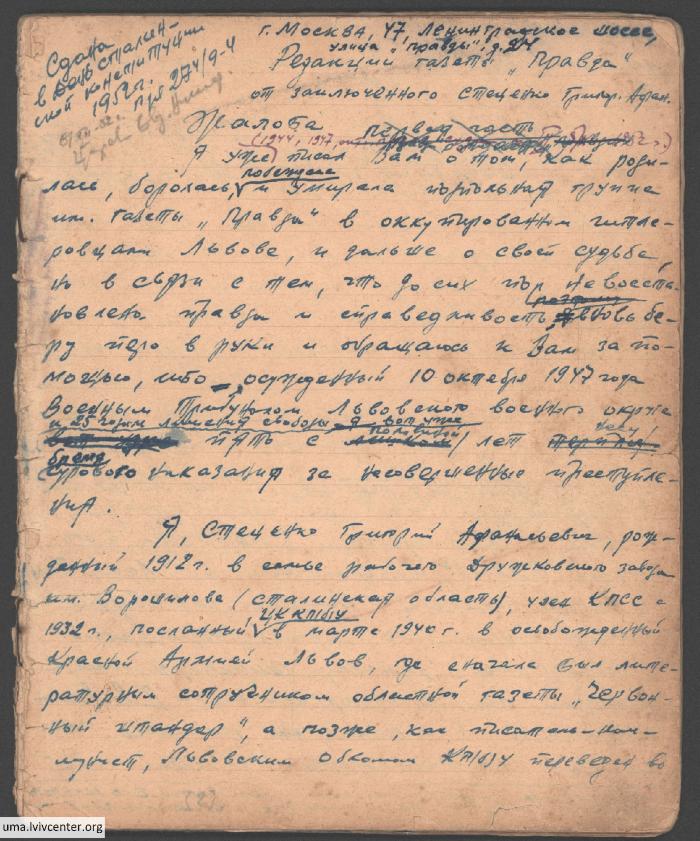 Сдана
в день сталин-
ской конституции
1952 г.
при 274/9-4
г. Москва, 47, Ленинградское шоссе,
улица „Правды", д. 24
Редакции газеты „Правда"
от заключенного Стеценко Григор. Афан.
Жалоба
(1944, 1947,
Я уже писал Вам о том, как роди-
побеждала
лась, боролась, и умирала подпольная группа
им. газеты „Правда" в оккупированном гитле-
ровцами Львове, и дальше о своей судьбе,
но в связи с тем, что до сих пор не восста-
новлена правда и справедливость, вновь бе-
ру перо в руки и обращаюсь к Вам за по-
мощью, ибо, осужденный 10 октября 1947 года
Военным Трибуналом Львовского военного округа
к 25 годам лишения свободы, я вот уже
пять с половиной лет несу
бремя
сурового наказания за несовершенные преступле-
ния.
Я, Стеценко Григорий Афанасьевич, рож-
денный 1912 г. в семье рабочего Дружковского завода
им. Ворошилова (Сталинская область), член КПСС с
ЦК КП(б)У
1932 г., посланный в марте 1940 г. в освобожденный
Красной Армией Львов, где сначала был лите-
ратурным сотрудником областной газеты „Червон-
ный штандар", а позже, как писатель-ком-
мунист, Львовским Обкомом КП(б)У переведен во
uma.lvivcenter.org